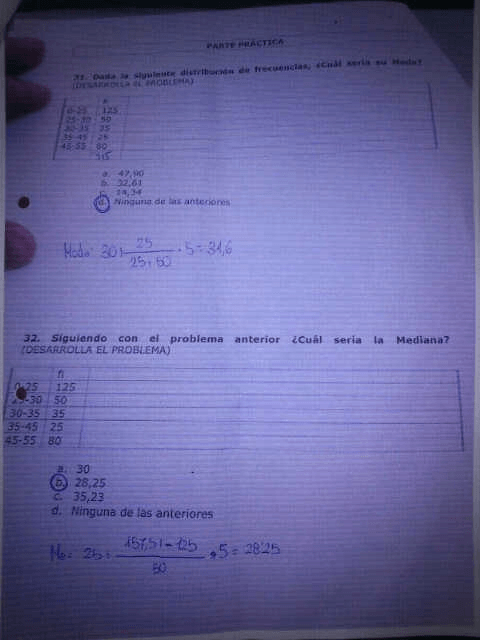 PARTE PRÁCTICA
31. Dada la siguiente distribución de frecuencias, ¿Cuál seria su Moda?
(DESARROLLA EL PROBLEMA)
fi
0-25 125
25-30 50
30-35 35
35-45 25
45-55 80
315
a. 47,90
b. 32,61
c. 14,34
d. Ninguna de las anteriores
Moda: 30+ 25 / 25+50 · 5 = 31,6
32. Siguiendo con el problema anterior ¿Cuál seria la Mediana?
(DESARROLLA EL PROBLEMA)
fi
0-25 125
25-30 50
30-35 35
35-45 25
45-55 80
a. 30
b. 28,25
c. 35,23
d. Ninguna de las anteriores
Me= 25+ 157,5 - 125 / 50 · 5 = 28'25